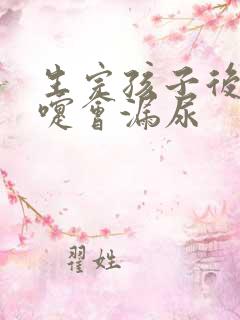 生完孩子後
嚏會漏尿
翟姓